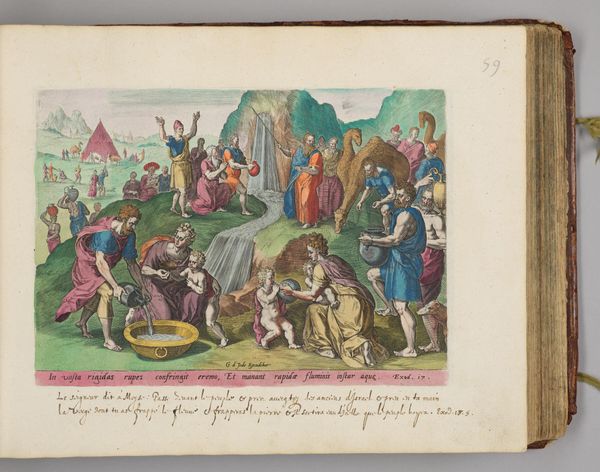 59
G d Jode Excudebat
In vasta rigidas rupes confringit eremo, Et manant rapidæ fluminis instar aquæ. Exod. 17.
Le seigneur dit a Moyse: Passe devant le peuple & pren avecq toy des anciens d'Israel & pren en ta main
la verge dont tu as frappé le fleuve & frapperas la pierre & sortira eau que le peuple boyve. Exod. 17. 5.